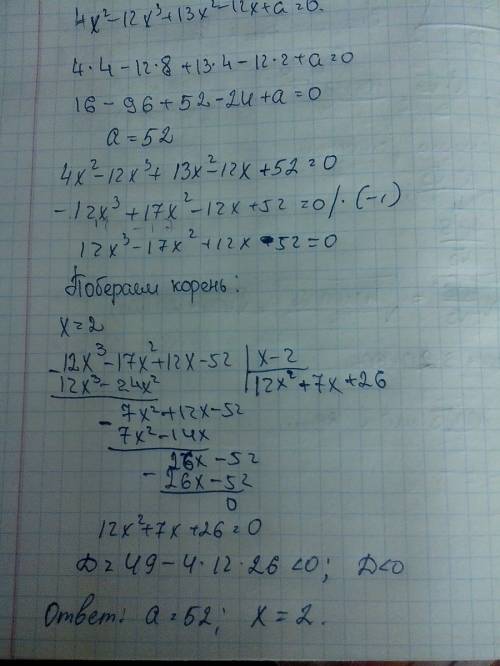 4x²-12x³+13x²-12x+a=0.
4·4-12·8+13·4-12·2+a=0
16-96+52-24+a=0
a=52
4x²-12x³+13x²-12x+52=0
-12x³+17x²-12x+52=0/·(-1)
12x³-17x²+12x-52=0
Побераем корень:
x=2
-12x³-17x²+12x-52 | x-2
12x³-24x² | 12x²+7x+26
-7x²+12x-52
7x²-14x
26x-52
-26x-52
0
12x²+7x+26=0
D=49-4·12·26<0; D<0
Ответ: a=52; x=2.